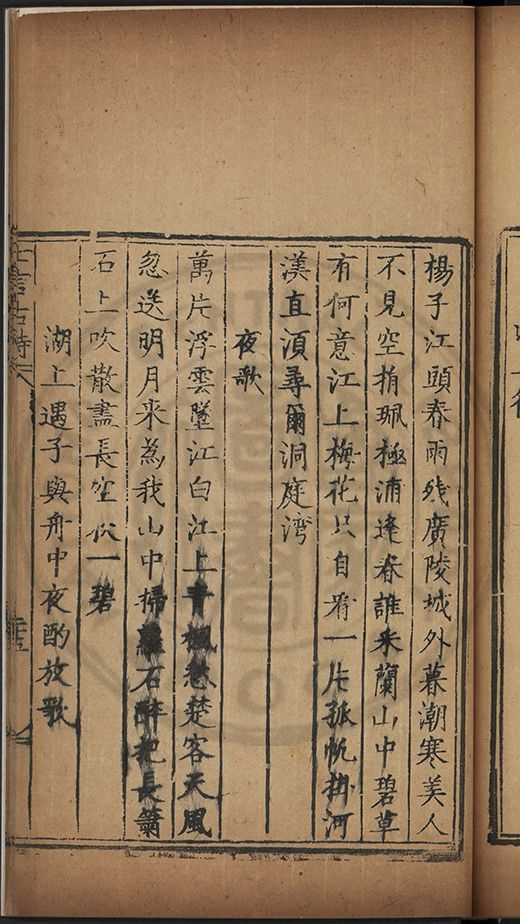 楊子江頭春雨殘廣陵城外暮潮寒美人
不見空捐珮極浦逢春誰采蘭山中碧草
有何意江上梅花只自看一片孤帆掛河
漢直湏尋爾洞庭灣
夜歌
萬片浮雲墜江白江上青楓愁楚客天風
忽送明月來為我山中掃蘿石醉把長簫
石上吹散盡長空似一碧
湖上遇子與舟中夜酌放歌
七言古詩